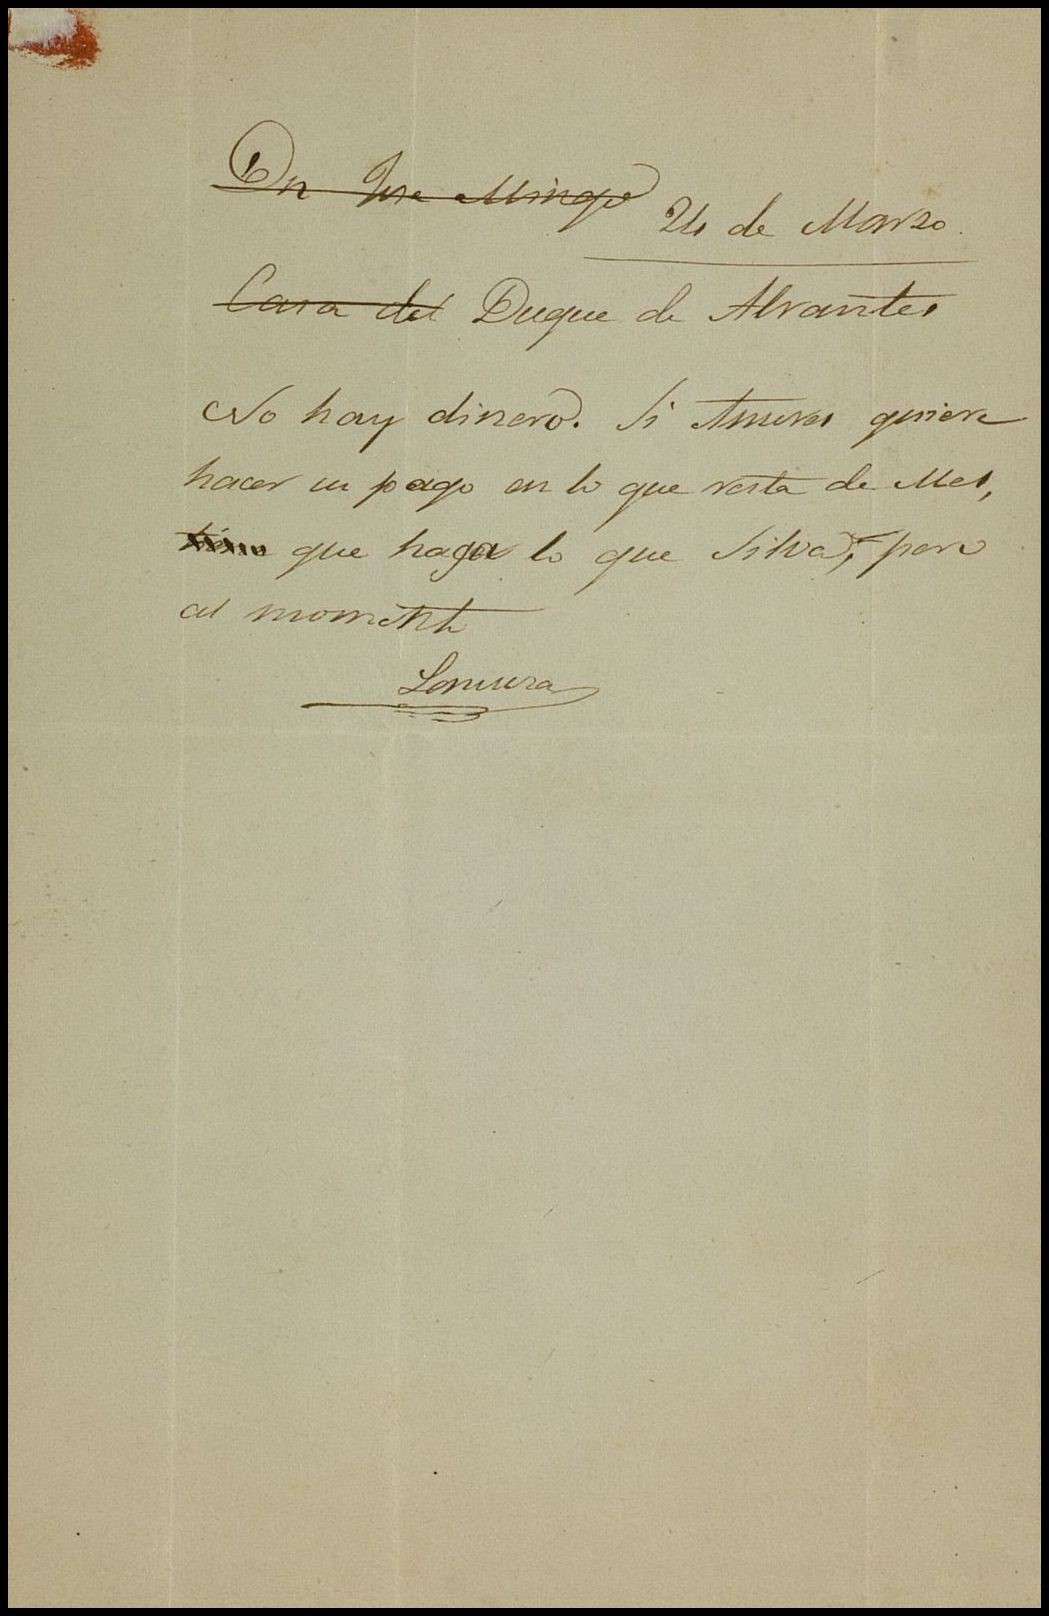 Dn Jose Mingo
24 de Marzo.
Casa del Duque de Abrantes
No hay dinero. Si quiere
hacer un pago en lo que resta de Mes,
que haga lo que Silva, pero
al momento